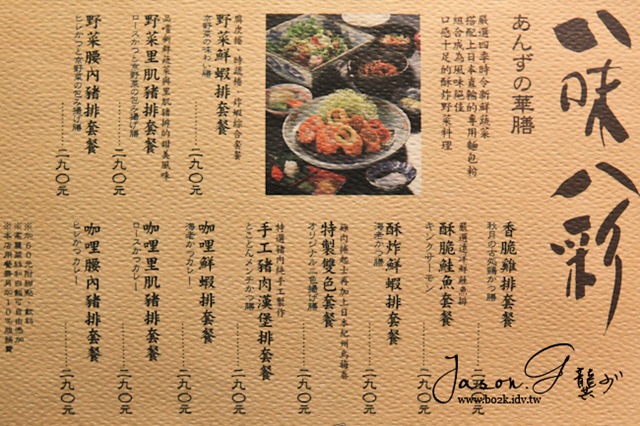 八味八彩
あんずの華膳
嚴選四季時令新鮮蔬菜
搭配上日本直輸的專用麵包粉
組合成為風味絕佳
口感十足的酥炸野菜料理
腐皮捲、時蔬捲、炸蝦綜合套餐
野菜鮮蝦排套餐
京野菜の味わい膳
二九〇元
品嚐新鮮蔬菜與里肌豬排的甜美風味
野菜里肌豬排套餐
ロースかつと京野菜の包み揚げ膳
二九〇元
野菜腰內豬排套餐
ヒレかつと京野菜の包み揚げ膳
二九〇元
香脆雞排套餐
秋月の古処鶏かつ膳
二九〇元
嚴選遠洋鮮鮭魚排
酥脆鮭魚套餐
キングサーモン
二九〇元
酥炸鮮蝦排套餐
海老かつ膳
二九〇元
雞肉捲起士再加上日本紀州烏梅醬
特製雙色套餐
オリジナル二色揚げ膳
二九〇元
特選豬肉純手工製作
手工豬肉漢堡排套餐
とことんメンチかつ膳
二九〇元
咖哩鮮蝦排套餐
海老かつカレー
二九〇元
咖哩里肌豬排套餐
ロースかつカレー
二九〇元
咖哩腰內豬排套餐
ヒレかつカレー
二九〇元
※加60元附甜點、飲料
※本店用餐需另加10%服務費
Jason.G 龔
www.bo2k.idv.tw